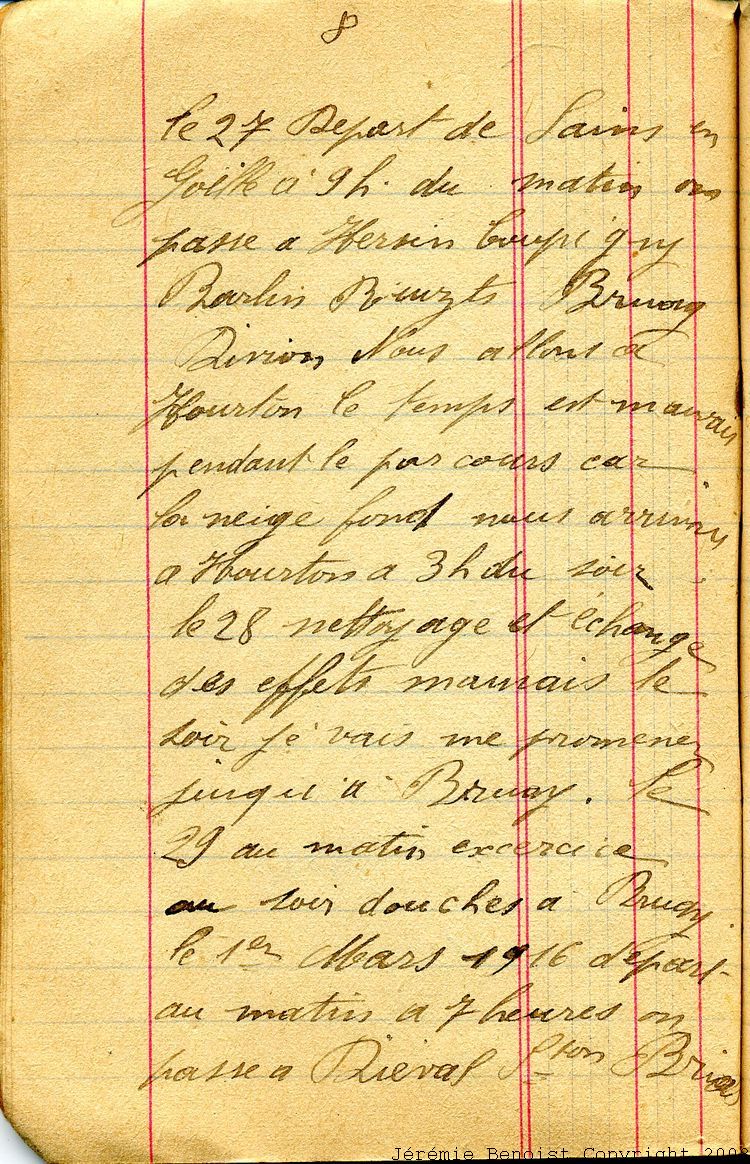 8
le 27 Depart de Sains en
Goëlle a 9 h. du matin on
passe a Hersin Coupigny
Barlin Ruizts Bruay
Divion Nous allons a
Hourton le temps est mauvais
pendant le parcours car
la neige fond nous arrivons
a Hourton a 3 h du soir
le 28 nettoyage et échange
des effets mauvais le
soir je vais me promener
jusqu'à Bruay. le
29 au matin excercice
au soir douches a Bruay
le 1er Mars 1916 départ
au matin a 7 heures on
passe a Diéval Brias
Jérémie Benoist Copyright